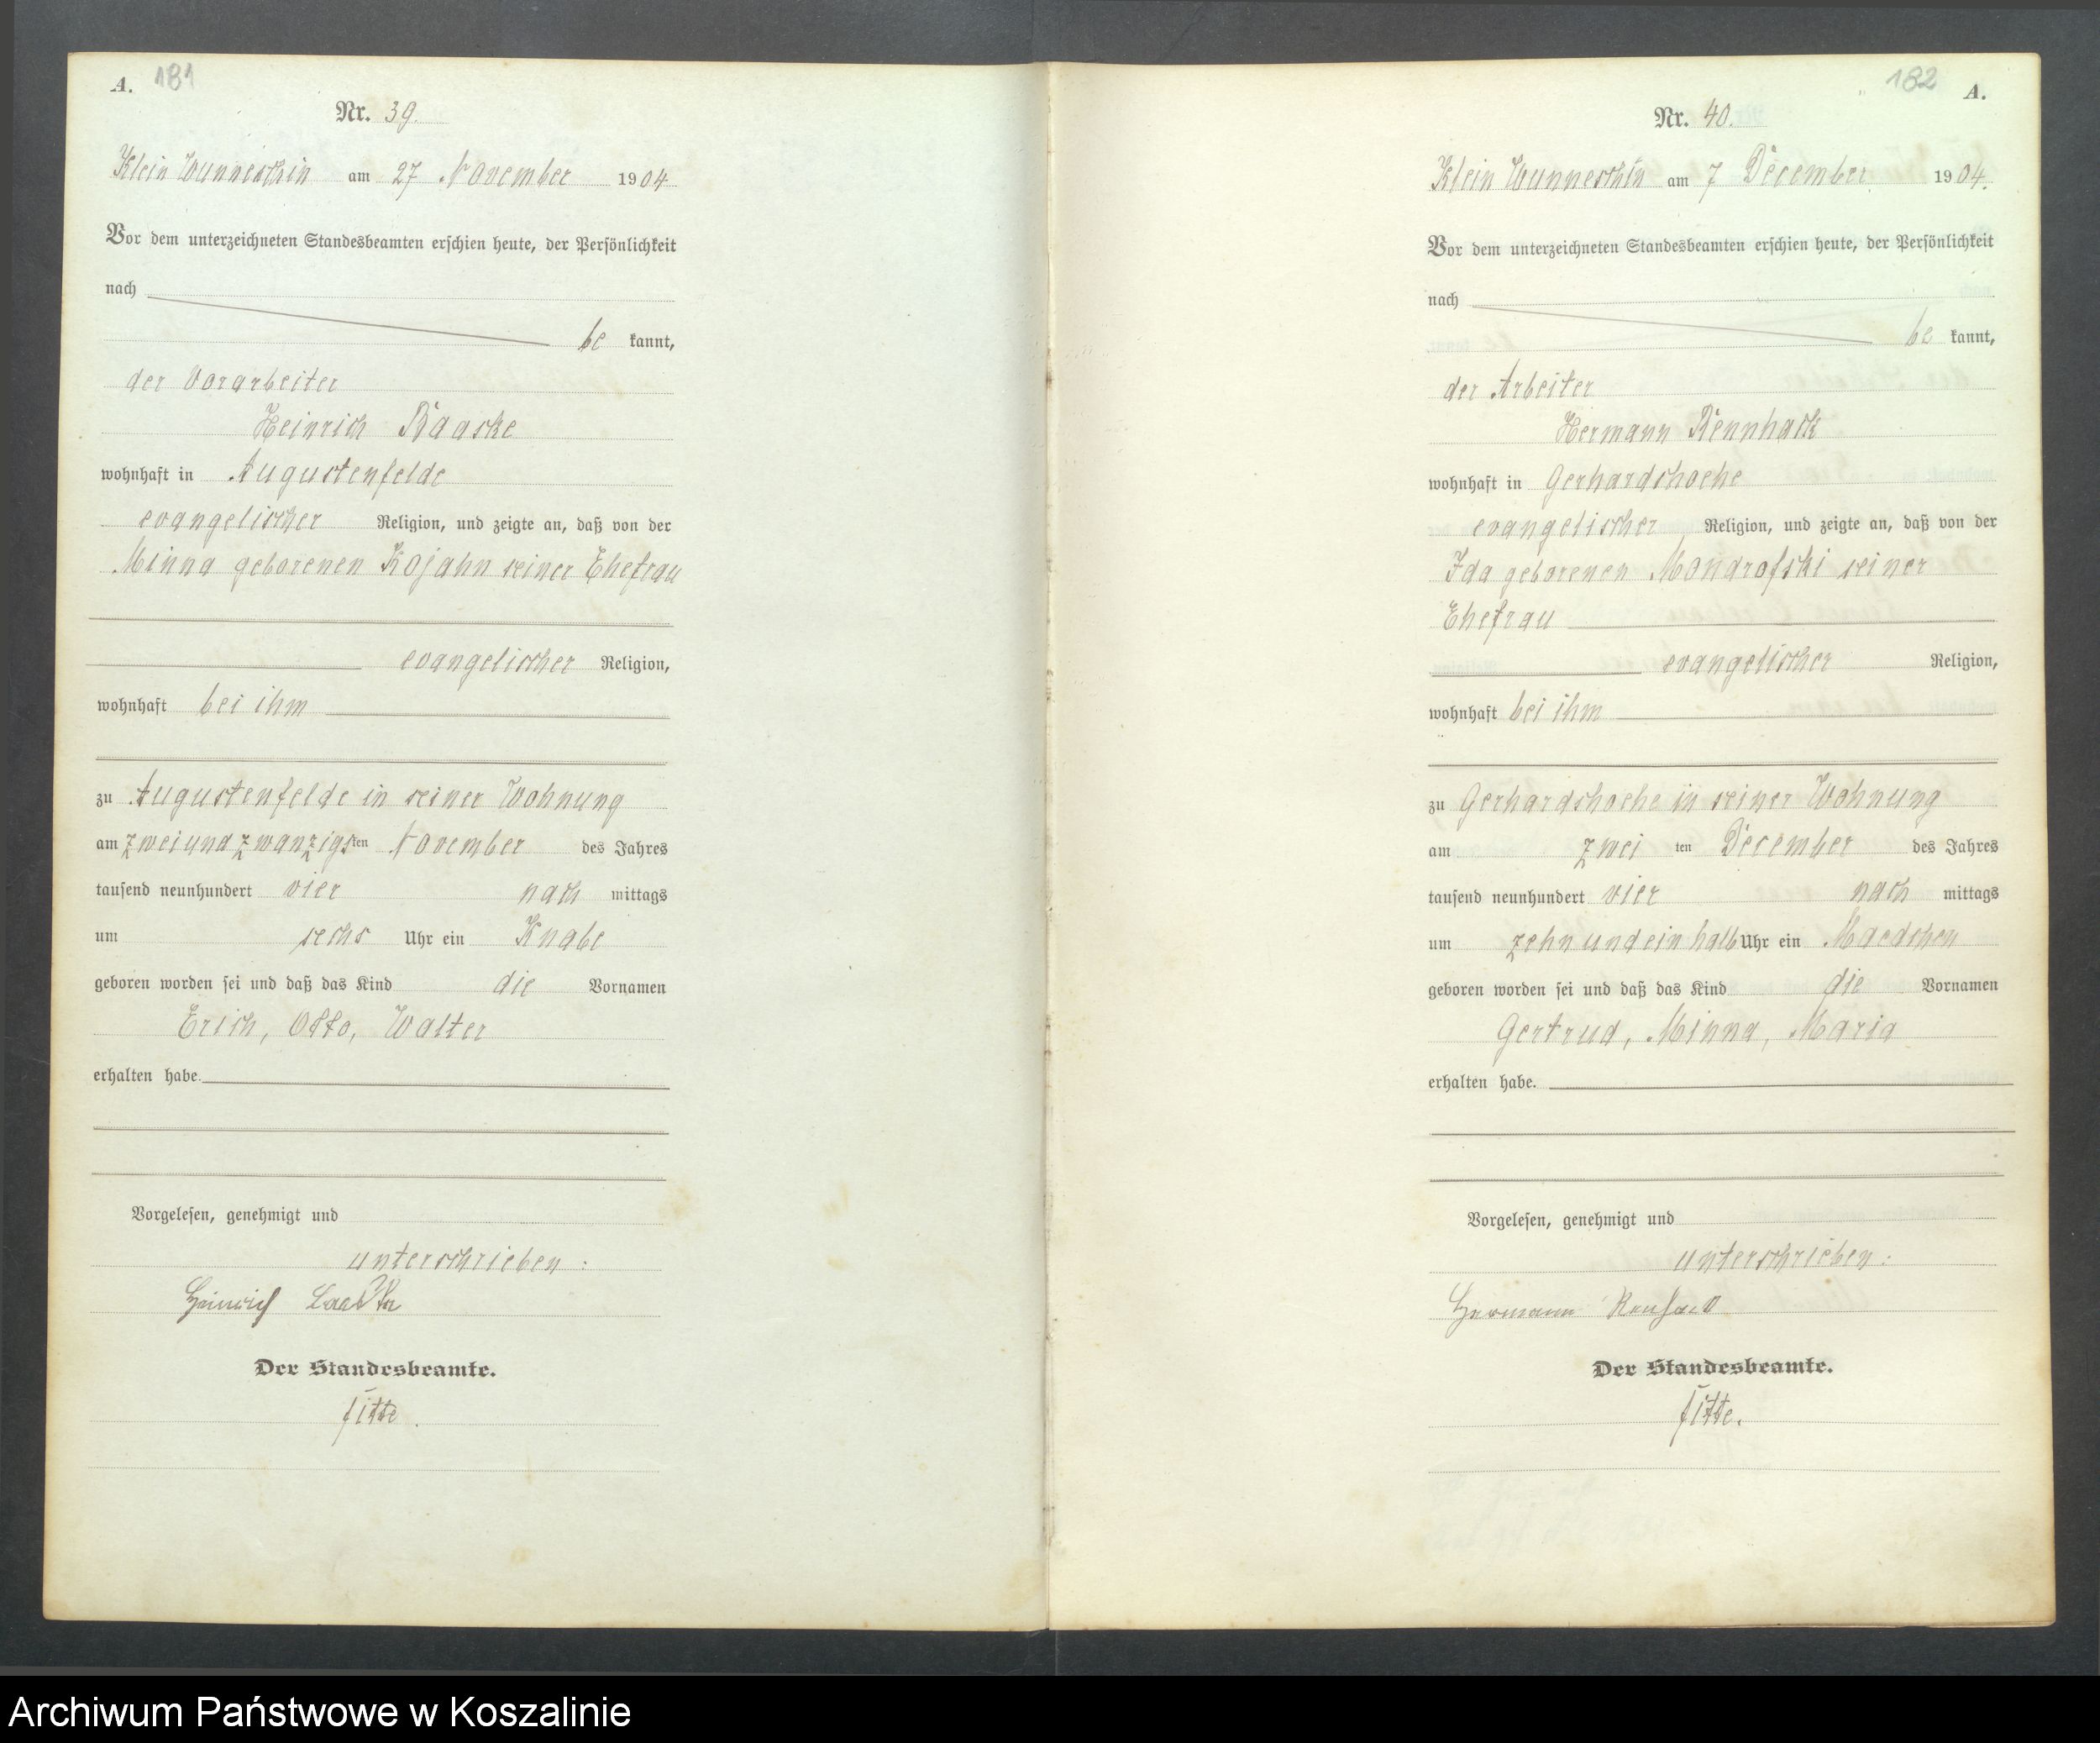 A. 181
Nr. 39.
Klein Wunneschin am 27 November 1904
Vor dem unterzeichneten Standesbeamten erschien heute, der Persönlichkeit
nach
be kannt,
der Vorarbeiter
Heinrich Baaske
wohnhaft in Augustenfelde
evangelischer Religion, und zeigte an, daß von der
Minna geborenen Kojahn seiner Ehefrau
evangelischer Religion,
wohnhaft bei ihm
zu Augustenfelde in seiner Wohnung
am zweiundzwanzigsten November des Jahres
tausend neunhundert vier nach mittags
um sechs Uhr ein Knabe
geboren worden sei und daß das Kind die Vornamen
Erich, Otto, Walter
erhalten habe.
Vorgelesen, genehmigt und
unterschrieben:
Heinrich
Der Standesbeamte.
182 A.
Nr. 40.
Klein Wunneschin am 7 December 1904.
Vor dem unterzeichneten Standesbeamten erschien heute, der Persönlichkeit
nach
be kannt,
der Arbeiter
Hermann Rennhack
wohnhaft in Gerhardshoehe
evangelischer Religion, und zeigte an, daß von der
Ida geborenen Mondrofski seiner
Ehefrau
evangelischer Religion,
wohnhaft bei ihm
zu Gerhardshoehe in seiner Wohnung
am zwei ten December des Jahres
tausend neunhundert vier nach mittags
um zehn und ein halb Uhr ein Maedchen
geboren worden sei und daß das Kind die Vornamen
Gertrud, Minna, Maria
erhalten habe.
Vorgelesen, genehmigt und
unterschrieben:
Hermann
Der Standesbeamte.
Archiwum Państwowe w Koszalinie